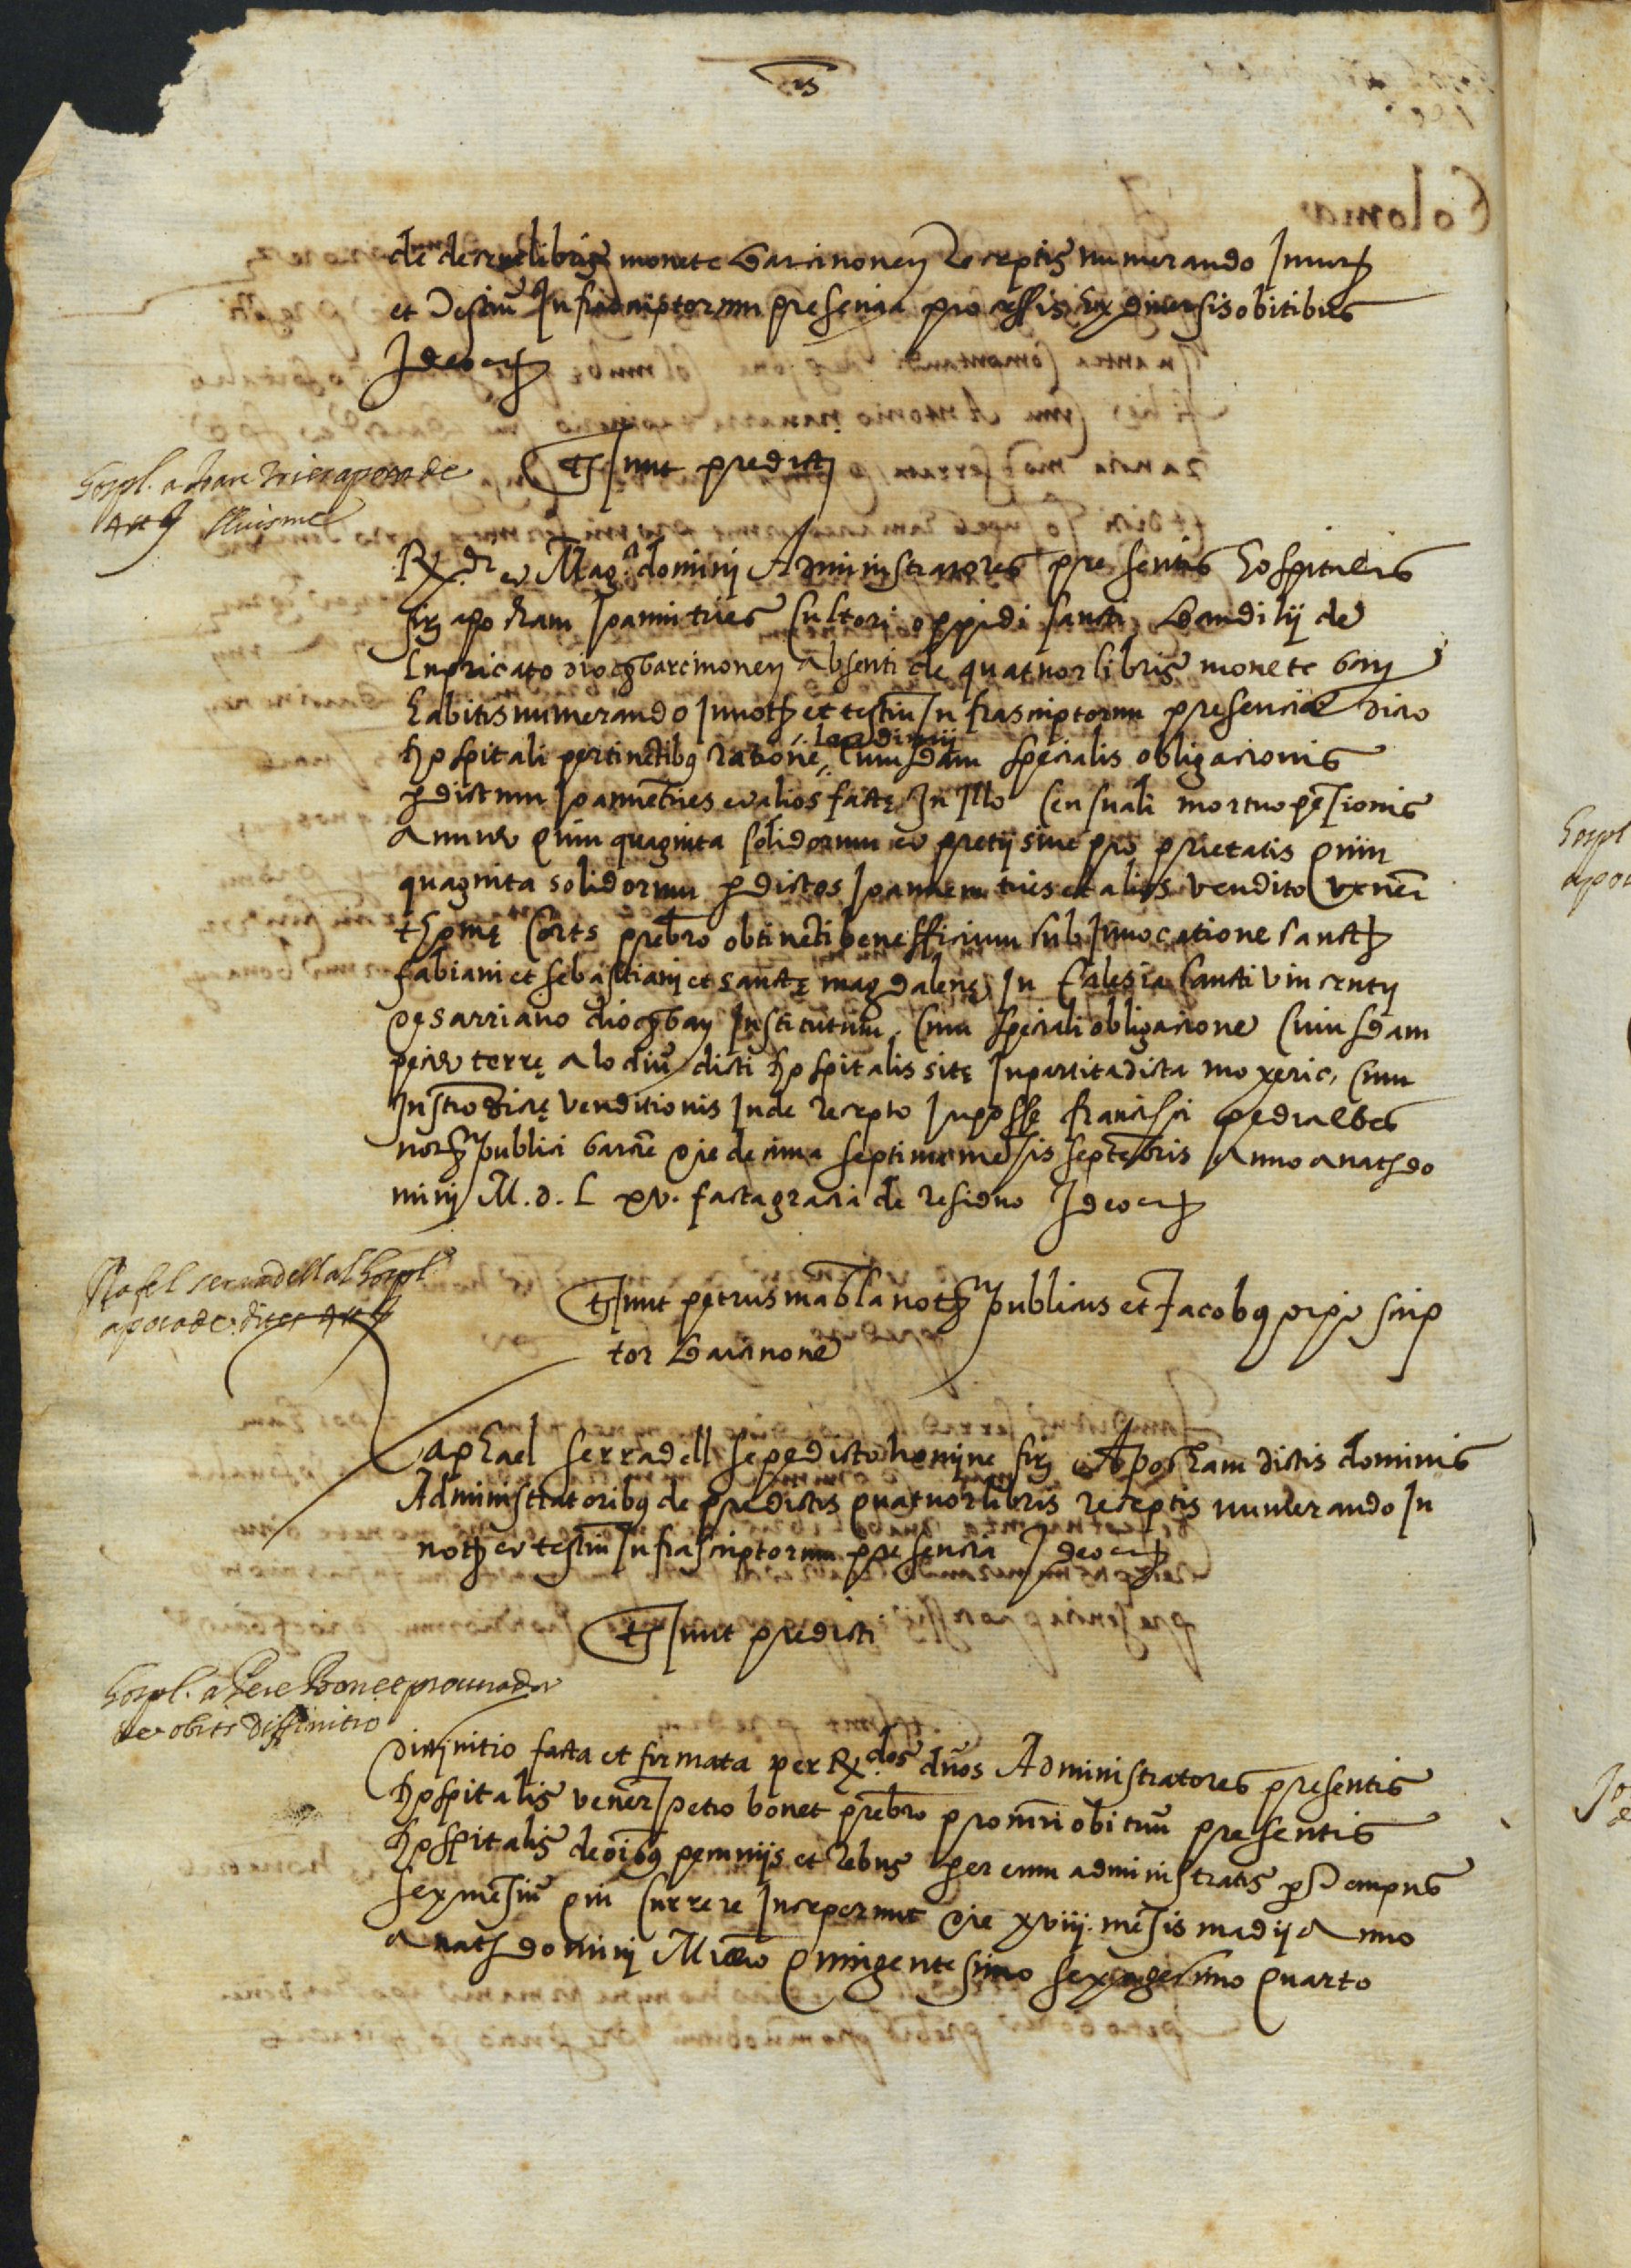 de decem libris monete barcinonen receptis numerando In not
et testiu Infrascriptorum presencia processis ex diversis obitibus
Ideo etc
Hospl. a Joan tries apoca de
4 ll lluisme
Ts sunt predicti
Rx.dī et Mag.ci dominij Administratores presentis hospitalis
firj apocham Joanni tries cultori oppidi sancti baudilij de
Lupricato dioc barcinonen absenti de quatuor libris monete barn
habitis numerando In not et testiu Infrascriptorum presencia dicto
hospitali pertinētibq ratione laudimij cuiusdam specialis obligacionis
p dictum Joannem tries et alios factę In Illo censuali mortuo pēsionis
annue quinquaginta solidorum et pretij sive proprietatis quin
quaginta solidorum p dictos Joannem tries et alios vendito venēr
thomę Corts prebro obtinēti beneffitium sub Invocatione sanct
fabiani et sebastiani et sanctę magdalenę In Eclesia sancti vincentij
de sarriano dioc barn Institutum, cum speciali obligacione cuiusdam
pecie terrę alodiū dicti hospitalis sitę In partita dicta moxeric, cum
Instro dictę venditionis Inde recepto In posse francisci pedralbes
not publici barcne die decima septima mēsis septēbris Anno a nat do
minj M.D.L xv. facta gracia de residuo Ideo etc
Rafel serradell al hospl
apoca de dites 4 ll
Ts sunt petrus mabla not publicus et Jacobq pipo scrip
tor barcinone
Raphael serradell sepedicto nomine firj Apocham dictis dominis
Administratoribq de predictis quatuor libris receptis numerando In
not et testiu Infrascriptorum presencia Ideo etc
Ts sunt predicti
Hospl. a Pere Bonet procurador
de obits diffinitio
Diffinitio facta et firmata per Rx.dos dnos Administratores presentis
hospitalis venēr petro bonet prebro procuri obituū presentis
hospitalis de oibq pecunijs et rebus per eum administratis p tempus
sex mēsiū qui currere Inceperunt die xviij. mēsis madij Anno
a nat dominj Millo quingentesimo sexagesimo quarto